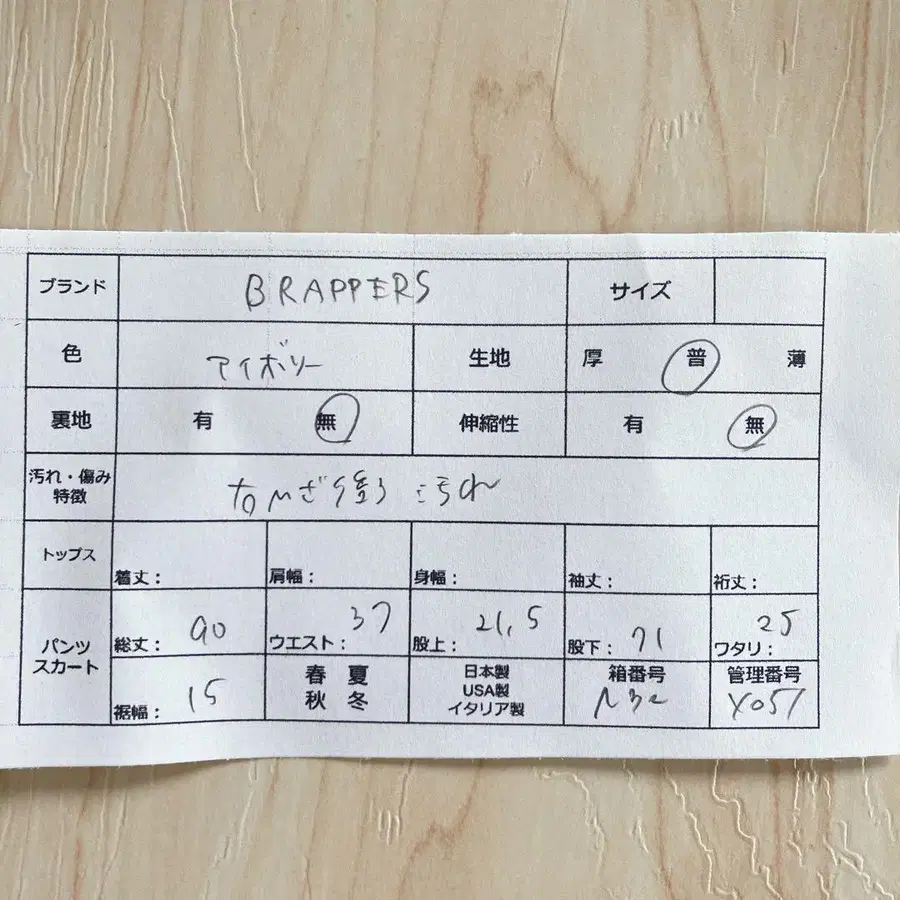 ブランド BRAPPERS サイズ
色 アイボリー 生地 厚 普 薄
裏地 有 無 伸縮性 有 無
汚れ・傷み
特徴 右ひざ後ろ 汚れ
トップス 着丈: 肩幅: 身幅: 袖丈: 裄丈:
パンツ
スカート
総丈: 90 ウエスト: 37 股上: 21,5 股下: 71 ワタリ: 25
裾幅: 15
春 夏
秋 冬
日本製
USA製
イタリア製
箱番号
管理番号
Y051